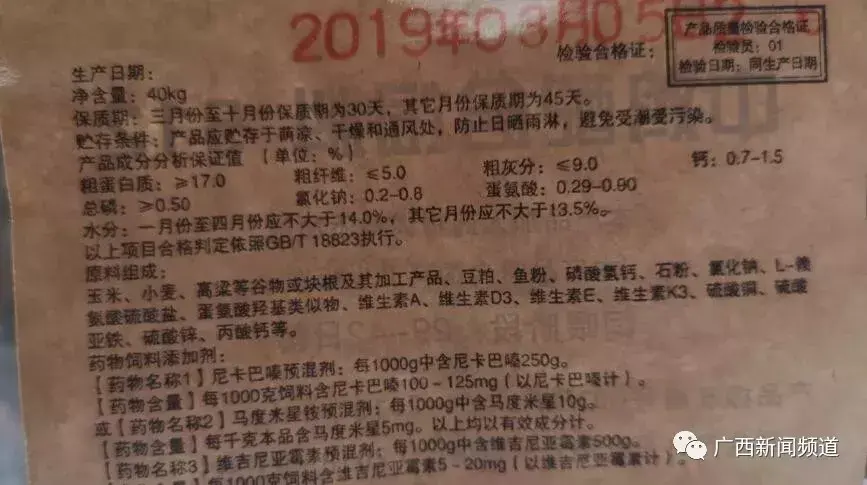 2019年03月05
检验合格证：
产品质量检验合格证
检验员：01
检验日期：同生产日期
生产日期：
净含量：40kg
保质期：三月份至十月份保质期为30天，其它月份保质期为45天。
贮存条件：产品应贮存于荫凉、干燥和通风处，防止日晒雨淋，避免受潮受污染。
产品成分分析保证值 （单位：%）
粗蛋白质：≥17.0 粗纤维：≤5.0 粗灰分：≤9.0 钙：0.7-1.5
总磷：≥0.50 氯化钠：0.2-0.8 蛋氨酸：0.29-0.90
水分：一月份至四月份应不大于14.0%，其它月份应不大于13.5%。
以上项目合格判定依照GB/T 18823执行。
原料组成：
玉米、小麦、高粱等谷物或块根及其加工产品、豆粕、鱼粉、磷酸氢钙、石粉、氯化钠、L-赖
氨酸硫酸盐、蛋氨酸羟基类似物、维生素A、维生素D3、维生素E、维生素K3、硫酸铜、硫酸
亚铁、硫酸锌、丙酸钙等。
药物饲料添加剂：
【药物名称1】尼卡巴嗪预混剂：每1000g中含尼卡巴嗪250g。
【药物含量】每1000克饲料含尼卡巴嗪100-125mg（以尼卡巴嗪计）。
或【药物名称2】马度米星铵预混剂：每1000g中含马度米星10g。
【药物含量】每千克本品含马度米星5mg。以上均以有效成分计。
【药物名称3】维吉尼亚霉素预混剂：每1000g中含维吉尼亚霉素500g。
【药物含量】每1000克饲料含维吉尼亚霉素5-20mg（以维吉尼亚霉素计）。
广西新闻频道